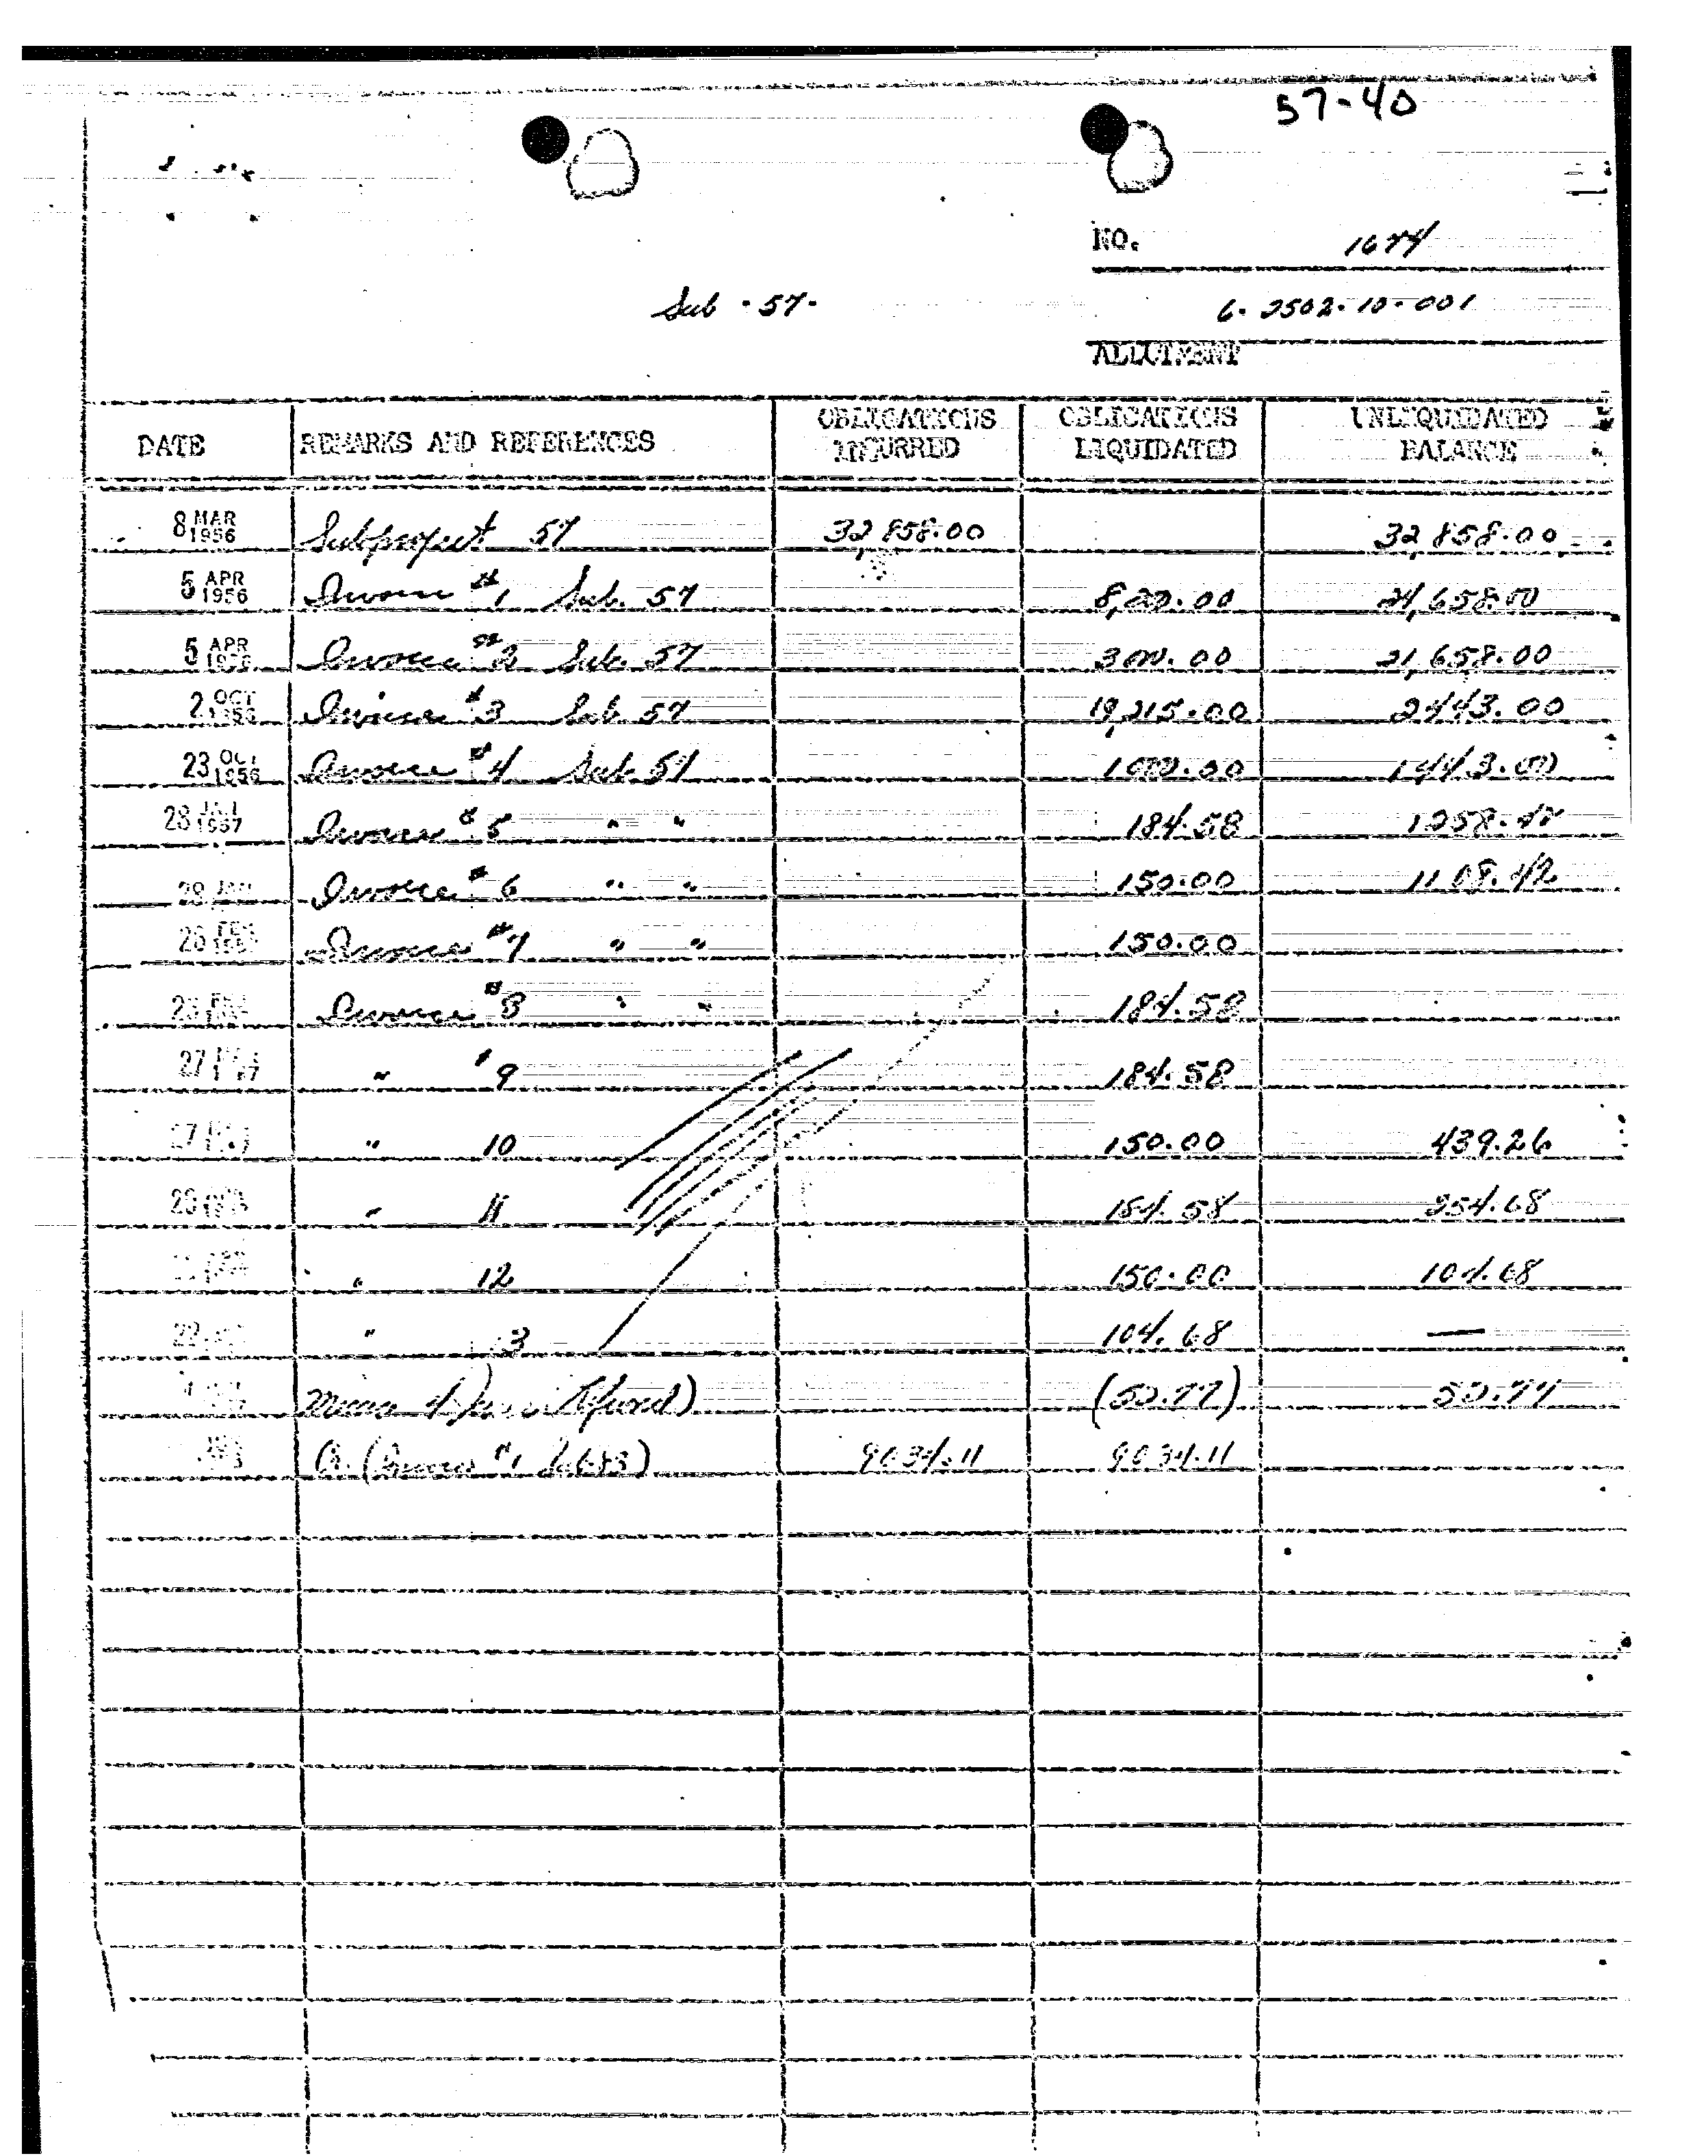 57-40
NO. 1674
Sub - 57- 6-2502-10-001
ALLOTMENT
DATE REMARKS AND REFERENCES OBLIGATIONS INCURRED OBLIGATIONS LIQUIDATED UNLIQUIDATED BALANCE
8 MAR 1956 Subproject 57 32,858.00 32,858.00
5 APR 1956 Invoice #1 Sub. 57 8,200.00 24,658.00
5 APR 1956 Invoice #2 Sub. 57 3000.00 21,658.00
2 OCT 1956 Invoice #3 Sub 57 19,215.00 2443.00
23 OCT 1956 Invoice #4 Sub. 57 1000.00 1443.00
28 JAN 1957 Invoice #5 " " 184.58 1258.42
28 JAN Invoice #6 " " 150.00 1108.42
26 FEB Invoice #7 " " 150.00
FEB Invoice #8 " " 184.58
27 " #9 184.58
27 " 10 150.00 439.26
" 11 184.58 254.68
" 12 150.00 104.68
22 " 13 104.68 —
(Refund) (50.77) 50.77
(Invoice #1 Sub 83) 9034.11 9034.11